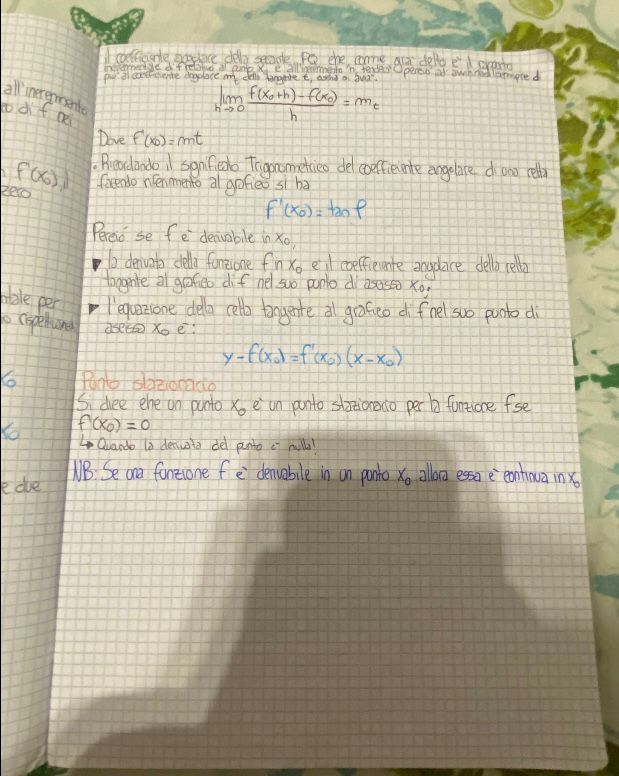 il coefficiente angolare della secante PQ che, come già detto è il rapporto
incrementale di f relativo al punto x₀ e all'incremento h, tende
più al coefficiente angolare mt della tangente t,
lim h→0 f(x₀+h)-f(x₀) / h = mt
Dove f'(x₀)=mt
. Ricordando il significato Trigonometrico del coefficiente angolare di una retta
facendo riferimento al grafico si ha
f'(x₀)=tan ρ
Perciò se f è derivabile in x₀,
la derivata della funzione f in x₀ è il coefficiente angolare della retta
tangente al grafico di f nel suo punto di ascissa x₀.
l'equazione della retta tangente al grafico di f nel suo punto di
ascissa x₀ è:
y-f(x₀)=f'(x₀)(x-x₀)
Punto stazionario
Si dice che un punto x₀ è un punto stazionario per la funzione f se
f'(x₀)=0
↳ Quando la derivata del punto è nulla!
NB: Se una funzione f è derivabile in un punto x₀ allora essa è continua in x₀
all'incremento
to di f nei
f'(x₀), il
zero
tale per
x₀
x₀
e due